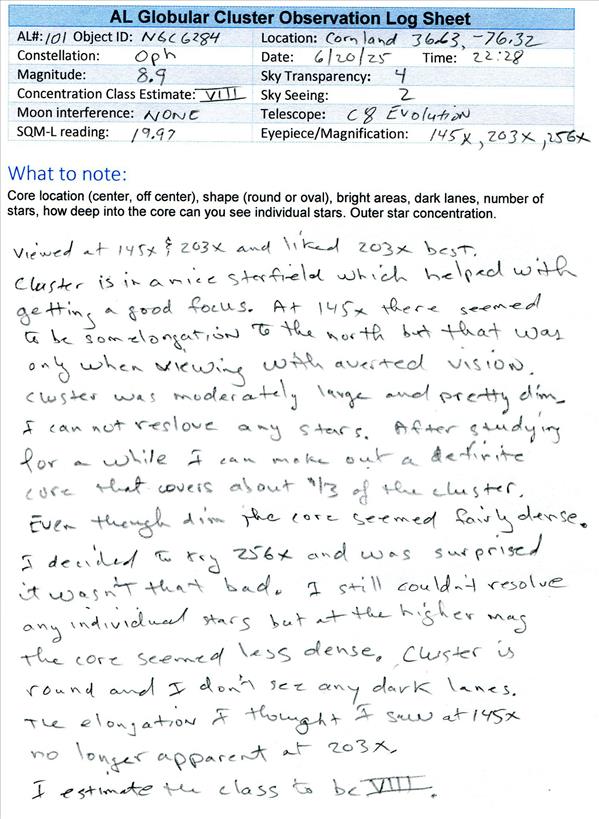 AL Globular Cluster Observation Log Sheet
AL#: 101 Object ID: NGC6284 Location: Cornland 36.63, -76.32
Constellation: Oph Date: 6/20/25 Time: 22:28
Magnitude: 8.9 Sky Transparency: 4
Concentration Class Estimate: VIII Sky Seeing: 2
Moon interference: NONE Telescope: C8 Evolution
SQM-L reading: 19.97 Eyepiece/Magnification: 145x, 203x, 256x
What to note:
Core location (center, off center), shape (round or oval), bright areas, dark lanes, number of
stars, how deep into the core can you see individual stars. Outer star concentration.
Viewed at 145x & 203x and liked 203x best.
Cluster is in a nice starfield which helped with
getting a good focus. At 145x there seemed
to be som elongation to the north but that was
only when viewing with averted vision.
Cluster was moderately large and pretty dim.
I can not reslove any stars. After studying
for a while I can make out a definite
core that covers about 1/3 of the cluster.
Even though dim the core seemed fairly dense.
I decided to try 256x and was surprised
it wasn't that bad. I still couldn't resolve
any individual stars but at the higher mag
the core seemed less dense. Cluster is
round and I don't see any dark lanes.
The elongation I thought I saw at 145x
no longer apparent at 203x.
I estimate the class to be VIII.